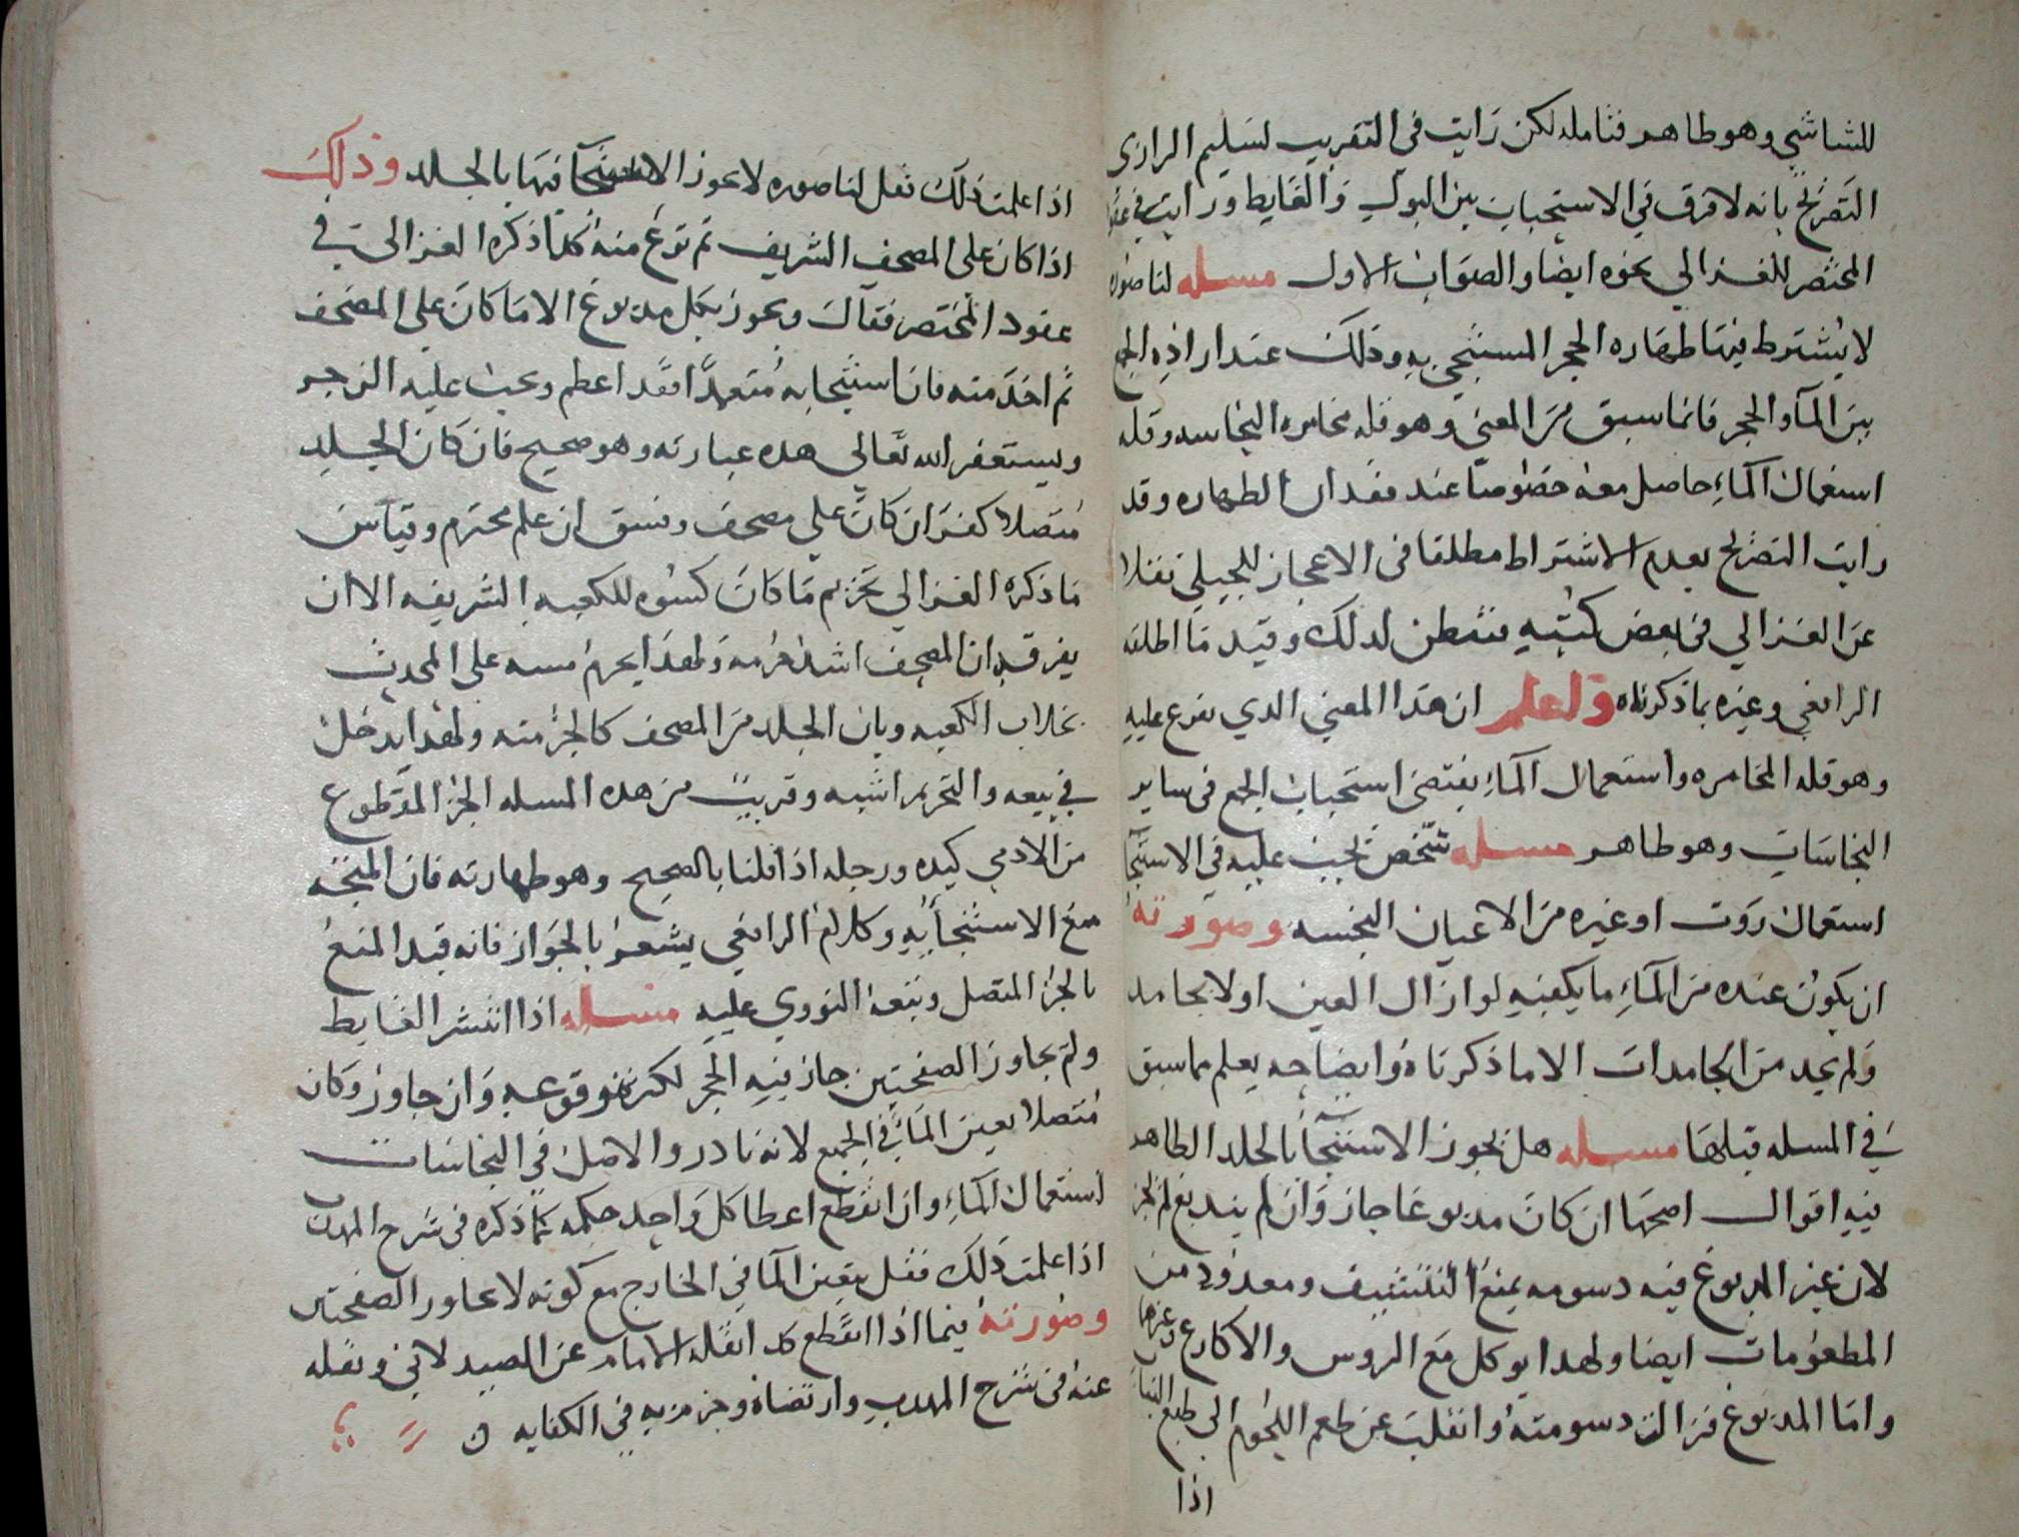 للشاشي وهو طاهر فتامله لكن رايت في التقريب لسليم الرازي
التصريح بانه لا فرق في الاستحباب بين البول والغايط ورايت في عقود
المختصر للغزالي نحوه ايضا والصواب الاول مسله لنا صوره
لا يشترط فيها طهاره الحجر المستنجي به وذلك عند اراده الجمع
بين المآ والحجر فانما سبق من المعني وهو قله مخامره النجاسه وقله
استعمال المآء حاصل معه خصوصا عند فقدان الطهاره وقد
رايت التصريح بعدم الاشتراط مطلقا في الاعجاز للجيلي نقلا
عن الغزالي في بعض كتبه فتفطن لذلك وقيد ما اطلقه
الرافعي وغيره بما ذكرناه واعلم ان هذا المعني الدي تفرع عليه
وهو قله المخامره واستعمال المآء يقتضى استحباب الجمع في ساير
النجاسات وهو طاهر مسله شخص يجب عليه في الاستنجآ
استعمال روث او غيره من الاعيان النجسه وصورته
ان يكون عنده من المآء ما يكفيه لو ازال العين اولا بجامد
ولم يجد من الجامدات الا ما ذكرناه وايضاحه يعلم مما سبق
في المسله قبلها مسله هل يجوز الاستنجآ بالجلد الطاهر
فيه اقوال اصحها ان كان مدبوغا جاز وان لم يندبغ لم يجز
لان غير المدبوغ فيه دسومه يمنع التنشيف ومعدود من
المطعومات ايضا ولهدا يوكل مع الروس والاكارع وغيرها
واما المدبوغ فزالت دسومته وانقلب عن طعم اللحوم الي طبع الثياب
اذا
اذا علمت ذلك فقل لنا صوره لا يجوز الاستنجآ فيها بالجلد وذلك
اذا كان على المصحف الشريف ثم نوع منه كذا ذكره الغزالي في
عقود المختصر فقال ويجوز بكل مدبوغ الا ما كان على المصحف
ثم اخذ منه فان استنجا به متعمدا فقد اعظم ويجب عليه الزجر
ويستغفر الله تعالى هده عبارته وهو صحيح فان كان الجلد
متصلا كفر ان كان علي مصحف وفسق ان علم محترم وقياس
ما ذكره الغزالي تحريم ما كان كسوه للكعبه الشريفه الا ان
يفرق بان المصحف اشد حرمه ولهذا يحرم مسه على المحدث
بخلاف الكعبه وبان الجلد من المصحف كالجزء منه ولهدا يدخل
في بيعه والتحريم اشبه وقريب من هده المسله الجز المقطوع
من الادمي كيده ورجله اذا قلنا بالصحيح وهو طهارته فان المتجه
منع الاستنجآ به وكلام الرافعي يشعر بالجواز فانه قيد المنع
بالجزء المتصل وتبعه النووي عليه مسله اذا انتشر الغايط
ولم يجاوز الصفحتين جاز فيه الحجر لكثرة وقوعه وان جاوز وكان
متصلا تعين المآ في الجميع لانه نادر والاصل في النجاسات
استعمال المآء وان انقطع اعطا كل واحد حكمه كذا ذكره في شرح المهدب
اذا علمت ذلك فقل يتعين المآ في الخارج مع كونه لا يجاوز الصفحتين
وصورته فيما اذا انقطع كذا نقله الامام عن الصيدلاني ونقله
عنه في شرح المهدب وارتضاه وجزم به في الكفايه